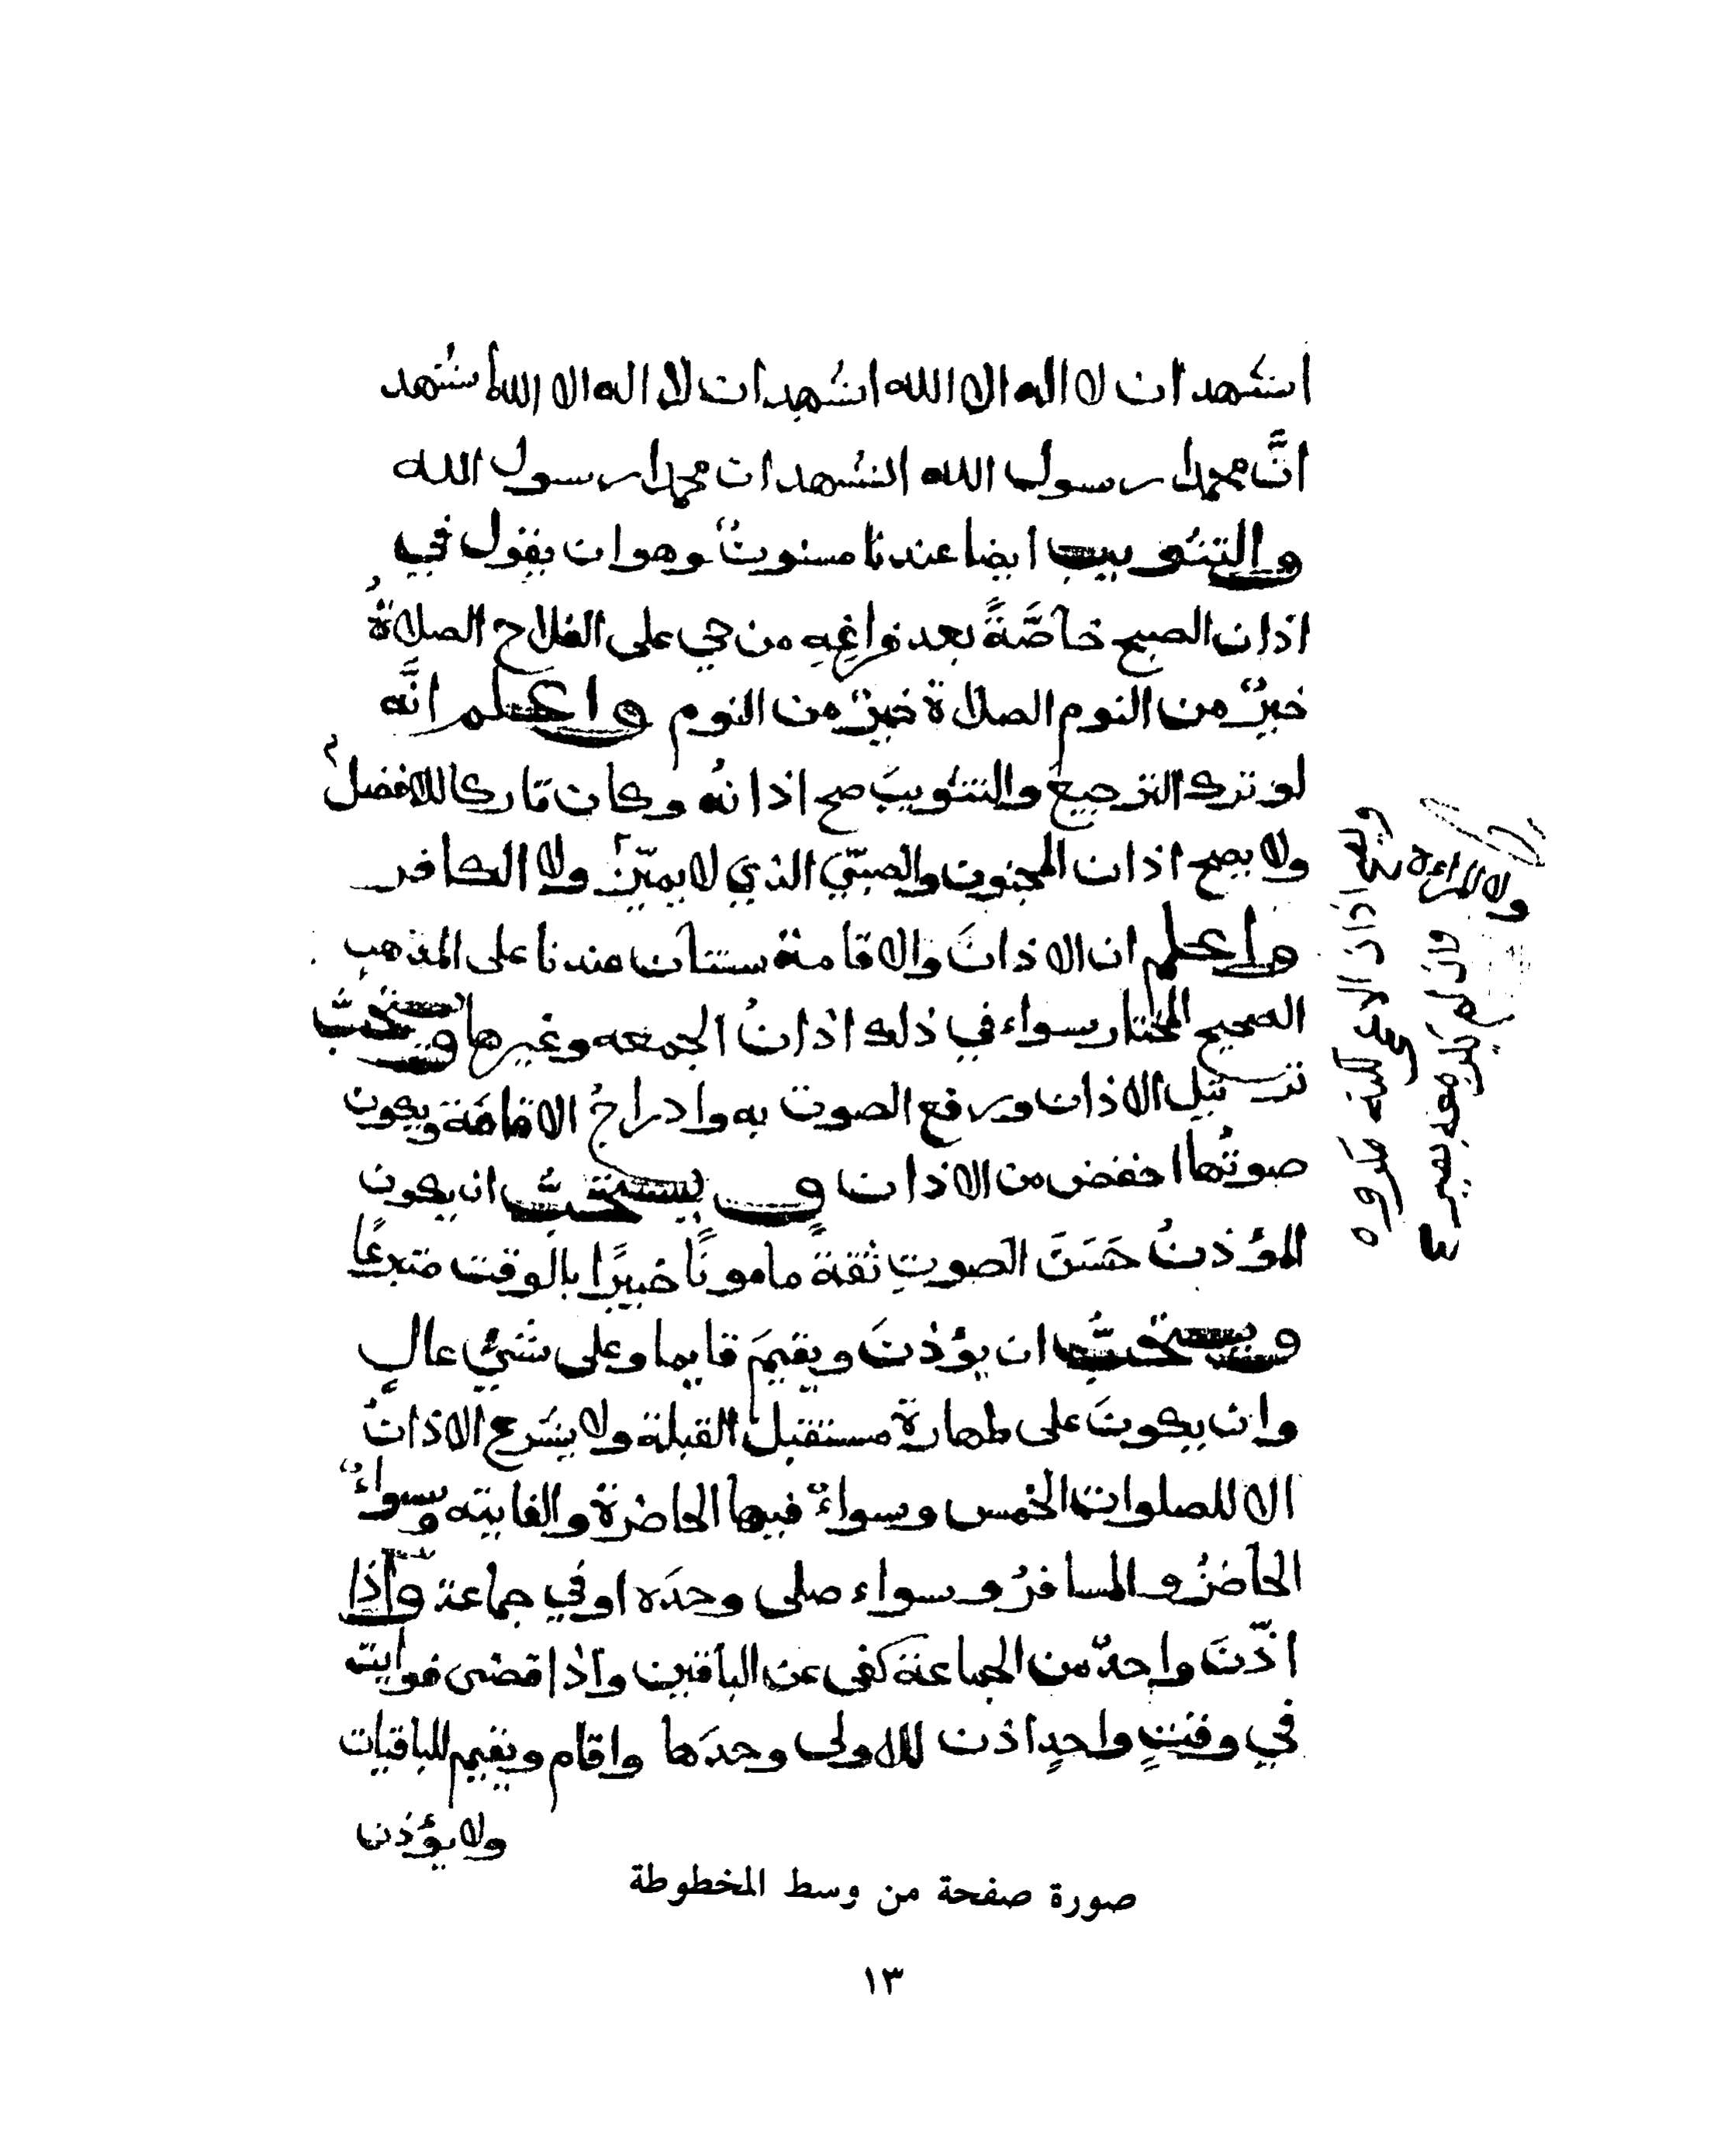 اشهد ان لا اله الا الله اشهد ان لا اله الا الله اشهد
انَّ محمدا رسول الله اشهد ان محمدا رسول الله
والتثويب ايضا عندنا مسنونٌ وهو ان يقول في
اذان الصبح خاصَّةً بعد فراغِهِ من حي على الفلاح الصلاةُ
خيرٌ من النوم الصلاة خيرٌ من النوم واعلم انَّه
لو ترك الترجيعَ والتثويبَ صح اذانُه وكان تاركا للافضل
ولا يصح اذان المجنون والصبيّ الذي لا يميّزُ ولا الكافر
واعلم ان الاذانَ والاقامة سنتان عندنا على المذهب
الصحيح المختار سواء في ذلك اذانُ الجمعه وغيرها ويستحبُّ
ترتيل الاذان ورفع الصوت به وادراجُ الاقامَة ويكون
صوتُها اخفض من الاذان ويستحبُّ ان يكون
المؤذنُ حَسَنَ الصوتِ ثقةً مامونًا خبيرًا بالوقت متبرعًا
ويستحبُّ ان يؤذنَ ويقيمَ قايما وعلى شئٍ عالٍ
وان يكونَ على طهارة مستقبل القبلة ولا يشرع الاذانُ
الا للصلوات الخمس وسواءٌ فيها الحاضرة والفايته وسواءٌ
الحاضرُ والمسافرُ وسواء صلى وحدَه او في جماعة واذا
اذّنَ واحدٌ من الجماعة كفى عن الباقين واذا قضى فوايت
في وقتٍ واحدٍ اذن للاولى وحدَها واقام ويقيم للباقيات
ولا يؤذن
صورة صفحة من وسط المخطوطة
١٣